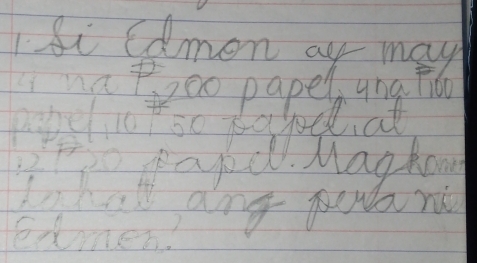 1. Si Edmon ay may
4 na ₱200 papel, 4 na ₱100
papel, 10 ₱50 papel, at
12 ₱20 papel. Magkano
lahat ang pera ni
Edmon?